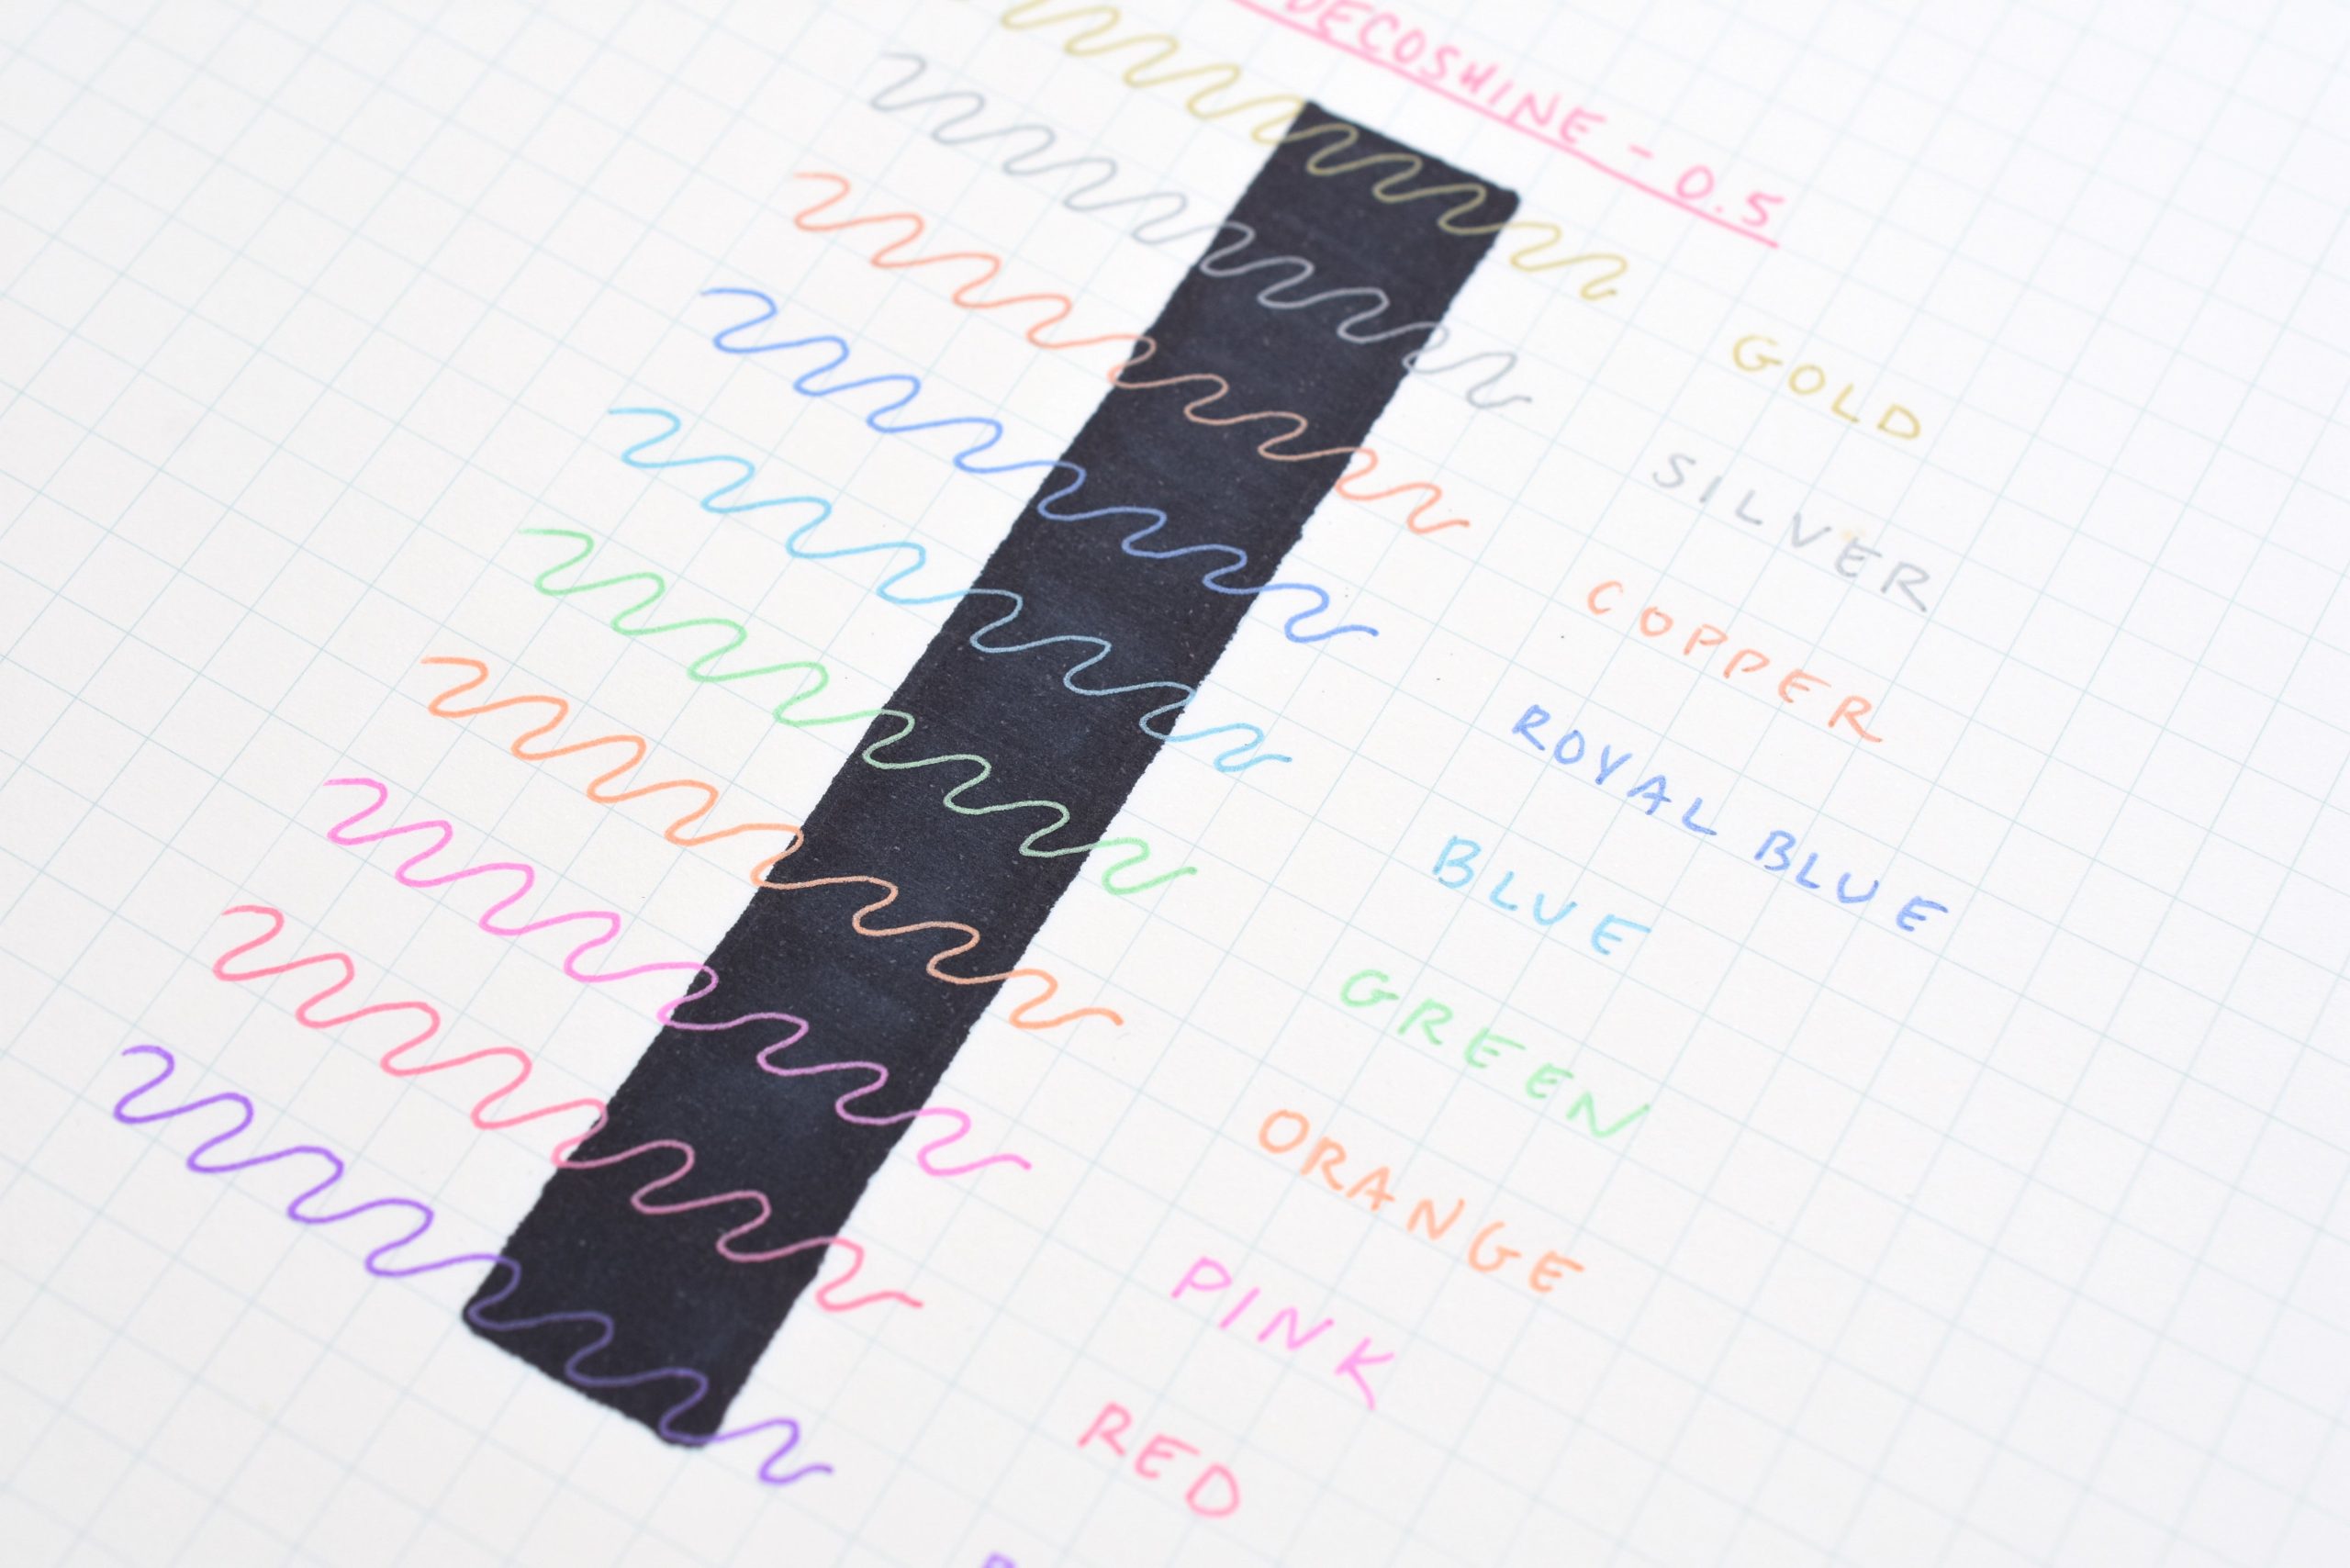 DECOSHINE - 0.5
GOLD
SILVER
COPPER
ROYAL BLUE
BLUE
GREEN
ORANGE
PINK
RED